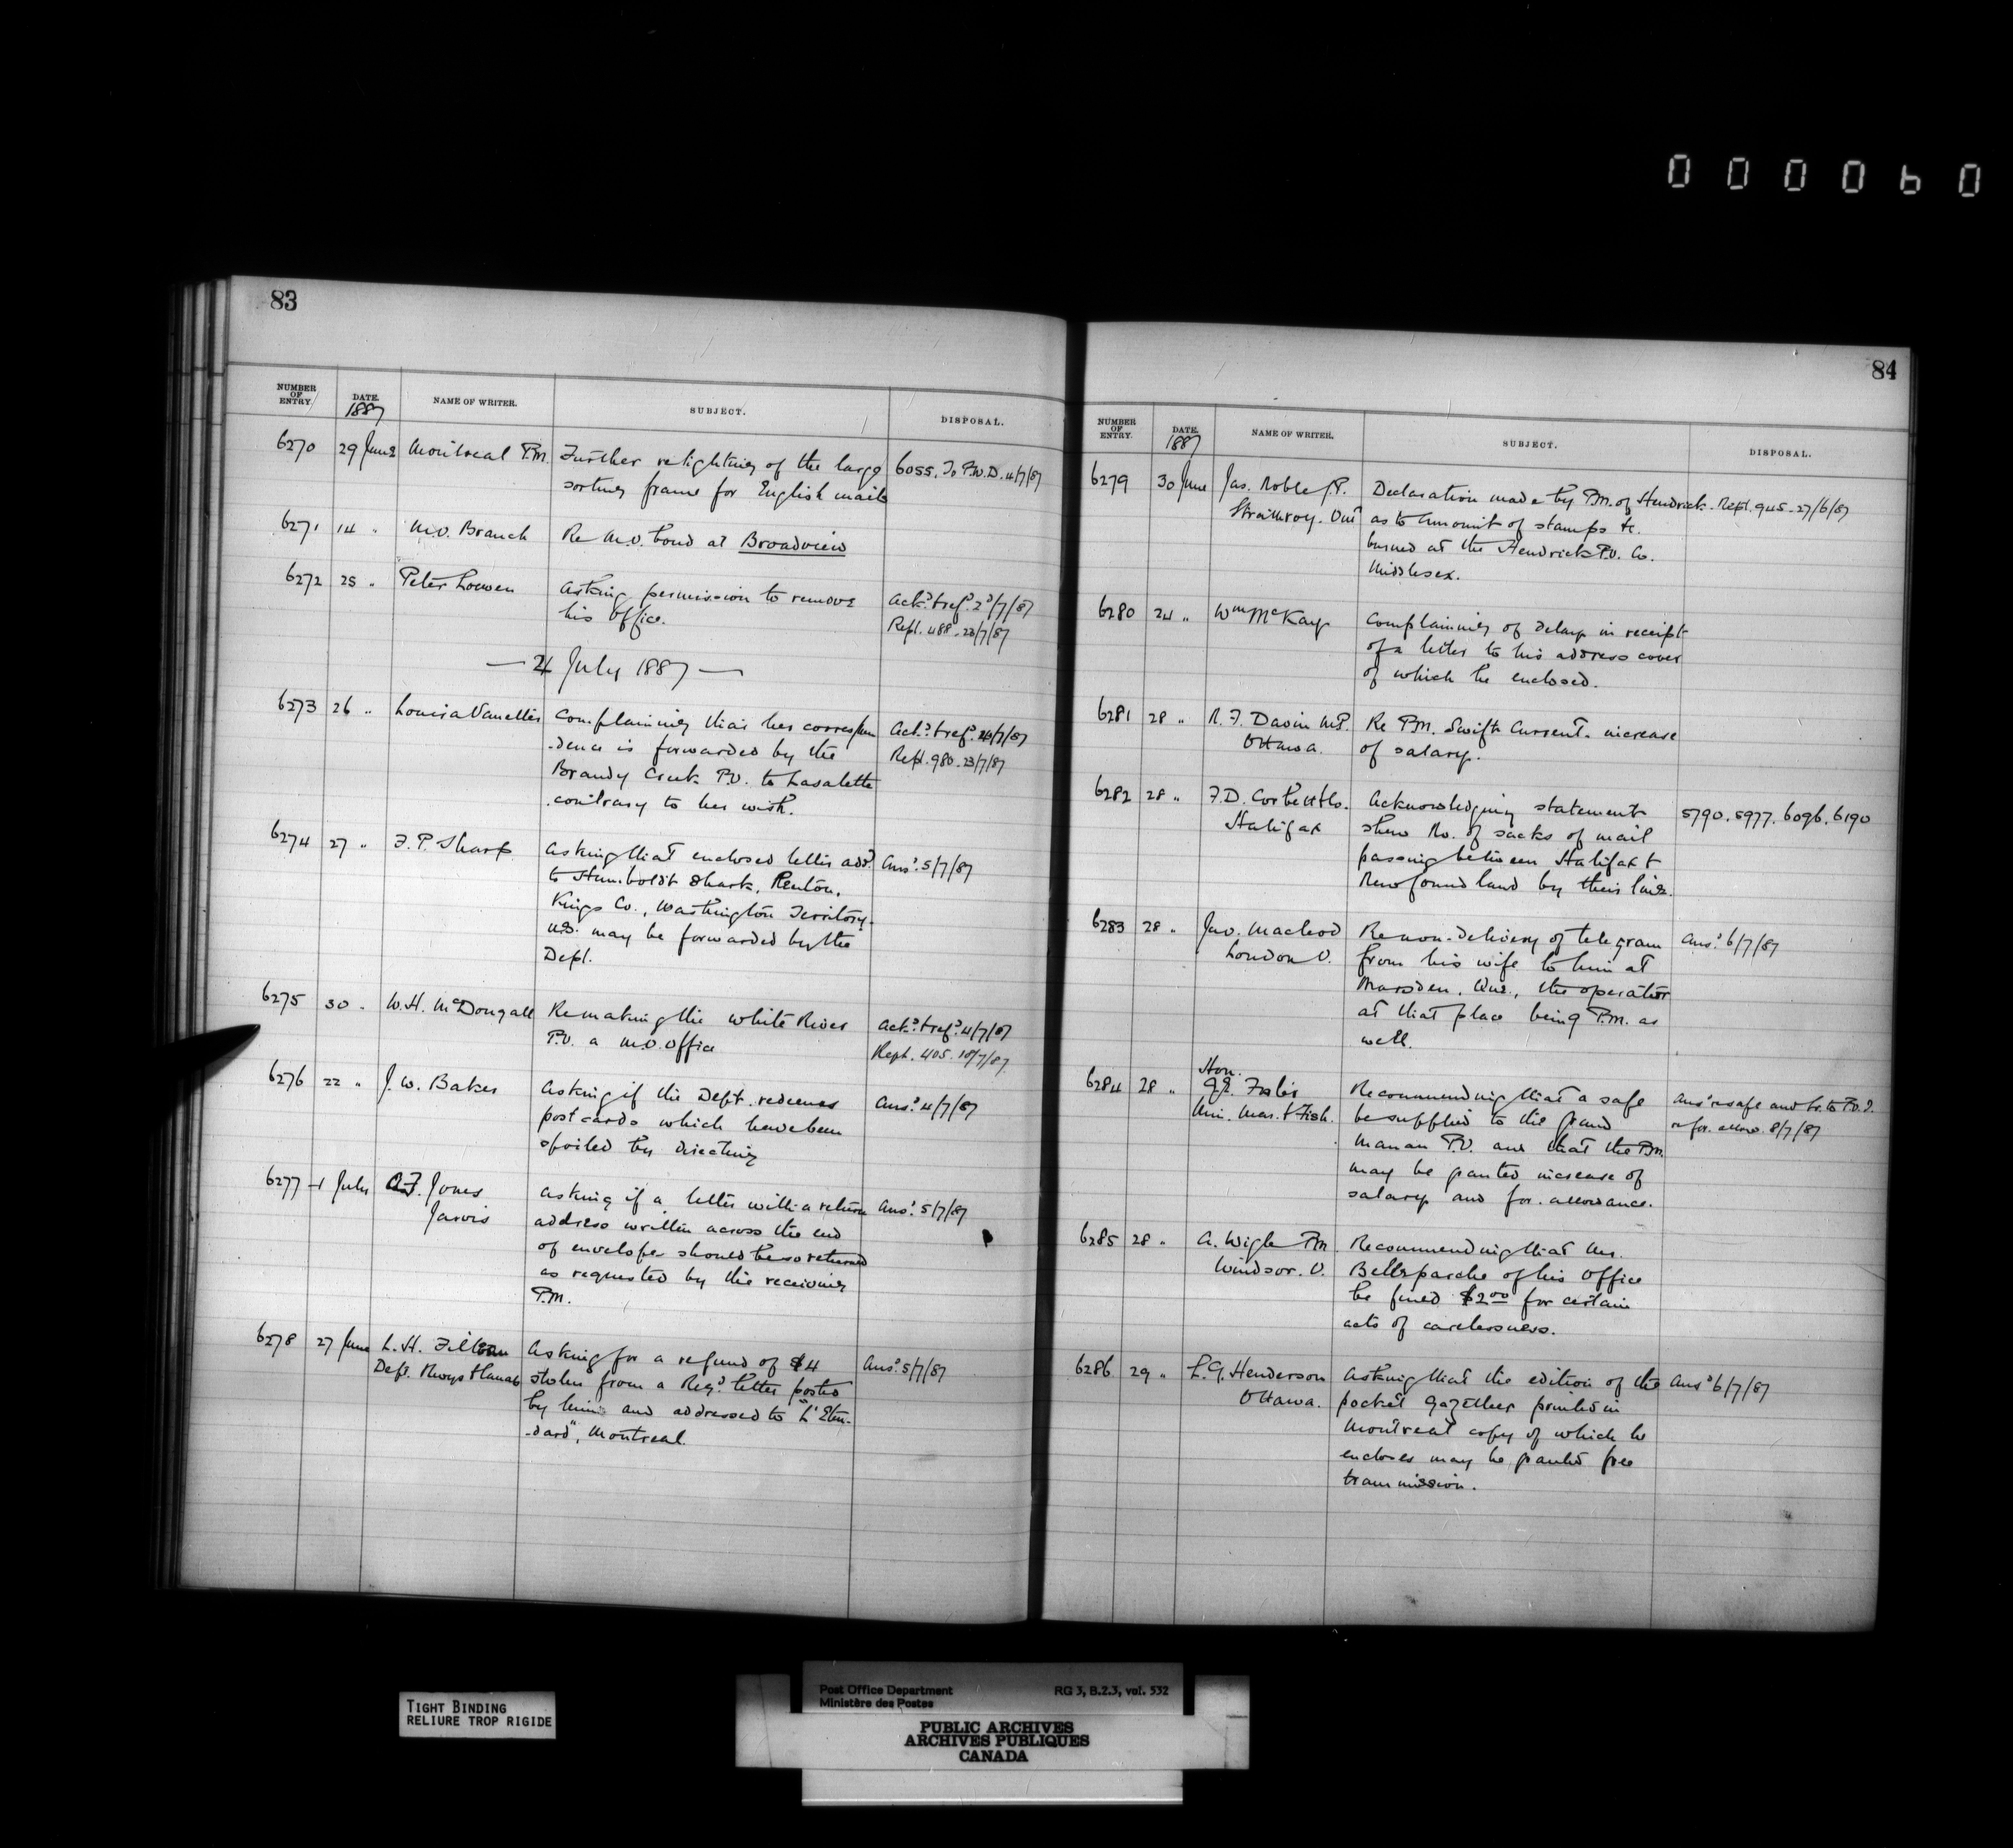 000060
83
NUMBER OF ENTRY
DATE. 1887
NAME OF WRITER.
SUBJECT.
DISPOSAL.
6270 29 June Montreal P.M. Further relighting of the large 6055. To P.W.D. 4/7/87
sorting frame for English mails
6271 14 " M.O. Branch Re M.O. bond at Broadview
6272 25 " Peter Louwen Asking permission to remove Ack.d & ref.d 2/7/87
his office. Repl. 488. 23/7/87
— 4 July 1887 —
6273 26 " Louisa Vanellis Complaining that her correspon Ack.d & ref.d 4/7/87
-dence is forwarded by the Repl. 980. 23/7/87
Brandy Creek P.O. to Lasalette
contrary to her wish.
6274 27 " F. P. Sharp Asking that enclosed letter add.d Ans.d 5/7/87
to Humboldt Shark, Renton,
Kings Co., Washington Territory.
U.S. may be forwarded by the
Dept.
6275 30 " W. H. McDougall Re making the White River Ack.d & ref.d 4/7/87
P.O. a M.O. office Rept. 405. 18/7/87
6276 22 " J. W. Baker Asking if the Dept. redeems Ans.d 4/7/87
post cards which have been
spoiled by directing
6277 1 July Jones Asking if a letter with a return Ans.d 5/7/87
Jarvis address written across the end
of envelope should be so returned
as requested by the receiving
P.M.
6278 27 June L. H. Asking for a refund of $4 Ans.d 5/7/87
Dept. Rwys & Canals stolen from a Reg.d letter posted
by him and addressed to "L'Eten-
-dard", Montreal.
84
NUMBER OF ENTRY.
DATE. 1887
NAME OF WRITER.
SUBJECT.
DISPOSAL.
6279 30 June Jas. Noble J.P. Declaration made by P.M. of Hendrick. Repl. 945. 27/6/87
Strathroy. Ont as to amount of stamps &c.
burned at the Hendrick P.O. Co.
Middlesex.
6280 24 " Wm McKay Complaining of delay in receipt
of a letter to his address cover
of which he enclosed.
6281 28 " N. F. Davin M.P. Re P.M. Swift Current. increase
Ottawa. of salary.
6282 28 " F. D. Corbett & Co. Acknowledging statement 5790. 5977. 6096. 6190
Halifax shew No. of sacks of mail
passing between Halifax &
Newfoundland by their line.
6283 28 " Jno. Macleod Re non-delivery of telegram Ans.d 6/7/87
London O. from his wife to him at
Marsden. Que., the operator
at that place being P.M. as
well.
6284 28 " Hon. G.E. Foster Recommending that a safe Ans.d re safe and tr. to P.O.I.
Min. Mar. & Fish. be supplied to the Grand re for. allow. 8/7/87
Manan P.O. and that the P.M.
may be granted increase of
salary and for. allowance.
6285 28 " A. Wigle P.M. Recommending that Mr.
Windsor. O. Belleperche of his office
be fined $2.00 for certain
acts of carelessness.
6286 29 " L. G. Henderson Asking that the edition of the Ans.d 6/7/87
Ottawa. pocket Gazetteer printed in
Montreal copy of which he
encloses may be granted free
transmission.
TIGHT BINDING
RELIURE TROP RIGIDE
Post Office Department RG 3, B.2.3, vol. 532
Ministère des Postes
PUBLIC ARCHIVES
ARCHIVES PUBLIQUES
CANADA